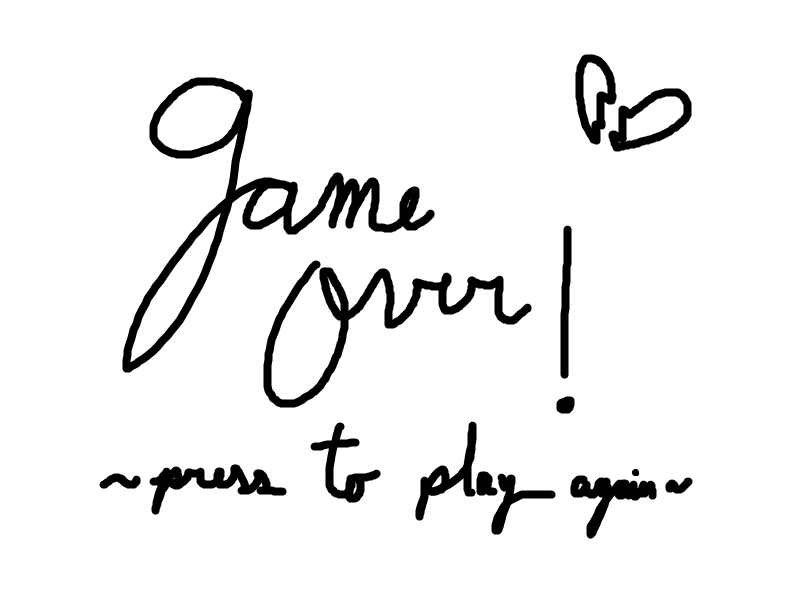 game
over!
~press to play again~